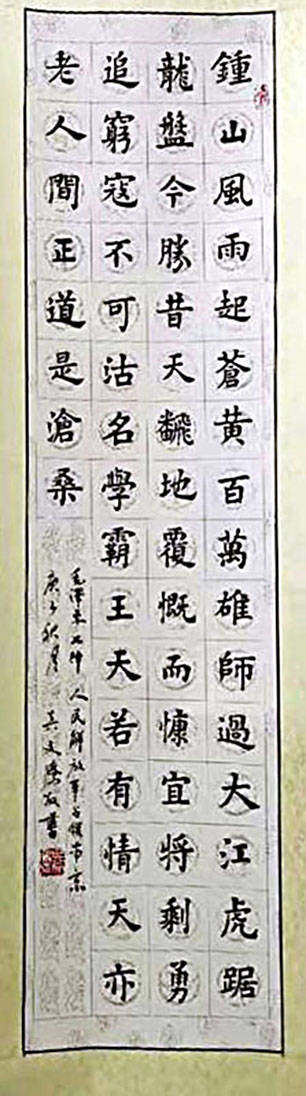 鍾山風雨起蒼黃百萬雄師過大江虎踞
龍盤今勝昔天飜地覆慨而慷宜將剩勇
追窮寇不可沽名學霸王天若有情天亦
老人間正道是滄桑
毛澤東七律 人民解放軍占領南京
庚子秋月 吳文 敬書